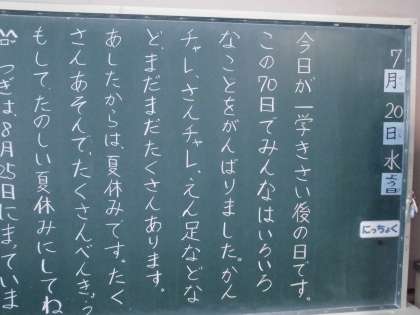 7月20日水よう日
にっちょく
今日が一学きさい後の日です。
この70日でみんなはいろいろ
なことをがんばりました。かん
チャレ、さんチャレ、えん足などな
ど、まだまだたくさんあります。
あしたからは、夏休みです。たく
さんあそんで、たくさんべんきょう
もして、たのしい夏休みにしてね
つぎは、8月25日にまっていま